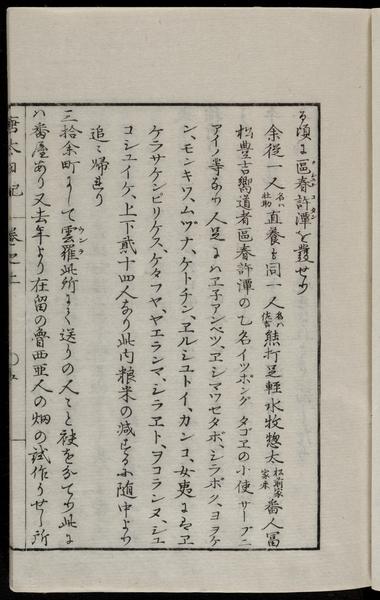 る頃に區春許潭を發せり
余從一人名ハ社助直養も同一人名ハ佐吉熊打足輕水牧惣太松前家家来番人冨
松豊吉嚮道者區春許潭の乙名イツポングタゴヱの小使サーブニ
アイノ等なり人足にハヱ子アンベツ、ヱシマウセタボ、シラポク、ヨヲケ
ン、モンキワ、ムヅナ、ケトチン、ヱルシユトイ、カンコ、女夷にハヱ
ケラサケンビリケス、ケタフヤ、ヤエランマ、シラヱト、ヲコランヌ、シユ
コシユイケ、上下貳十四人なり此内粮米の減するに随中より
追々帰せり
三拾余町にして雲羅此所にて送りの人々と袂を分てり此に
ハ番屋あり又去年より在留の魯西亜人の畑の試作りせし所
唐太日記 巻之上 〇五